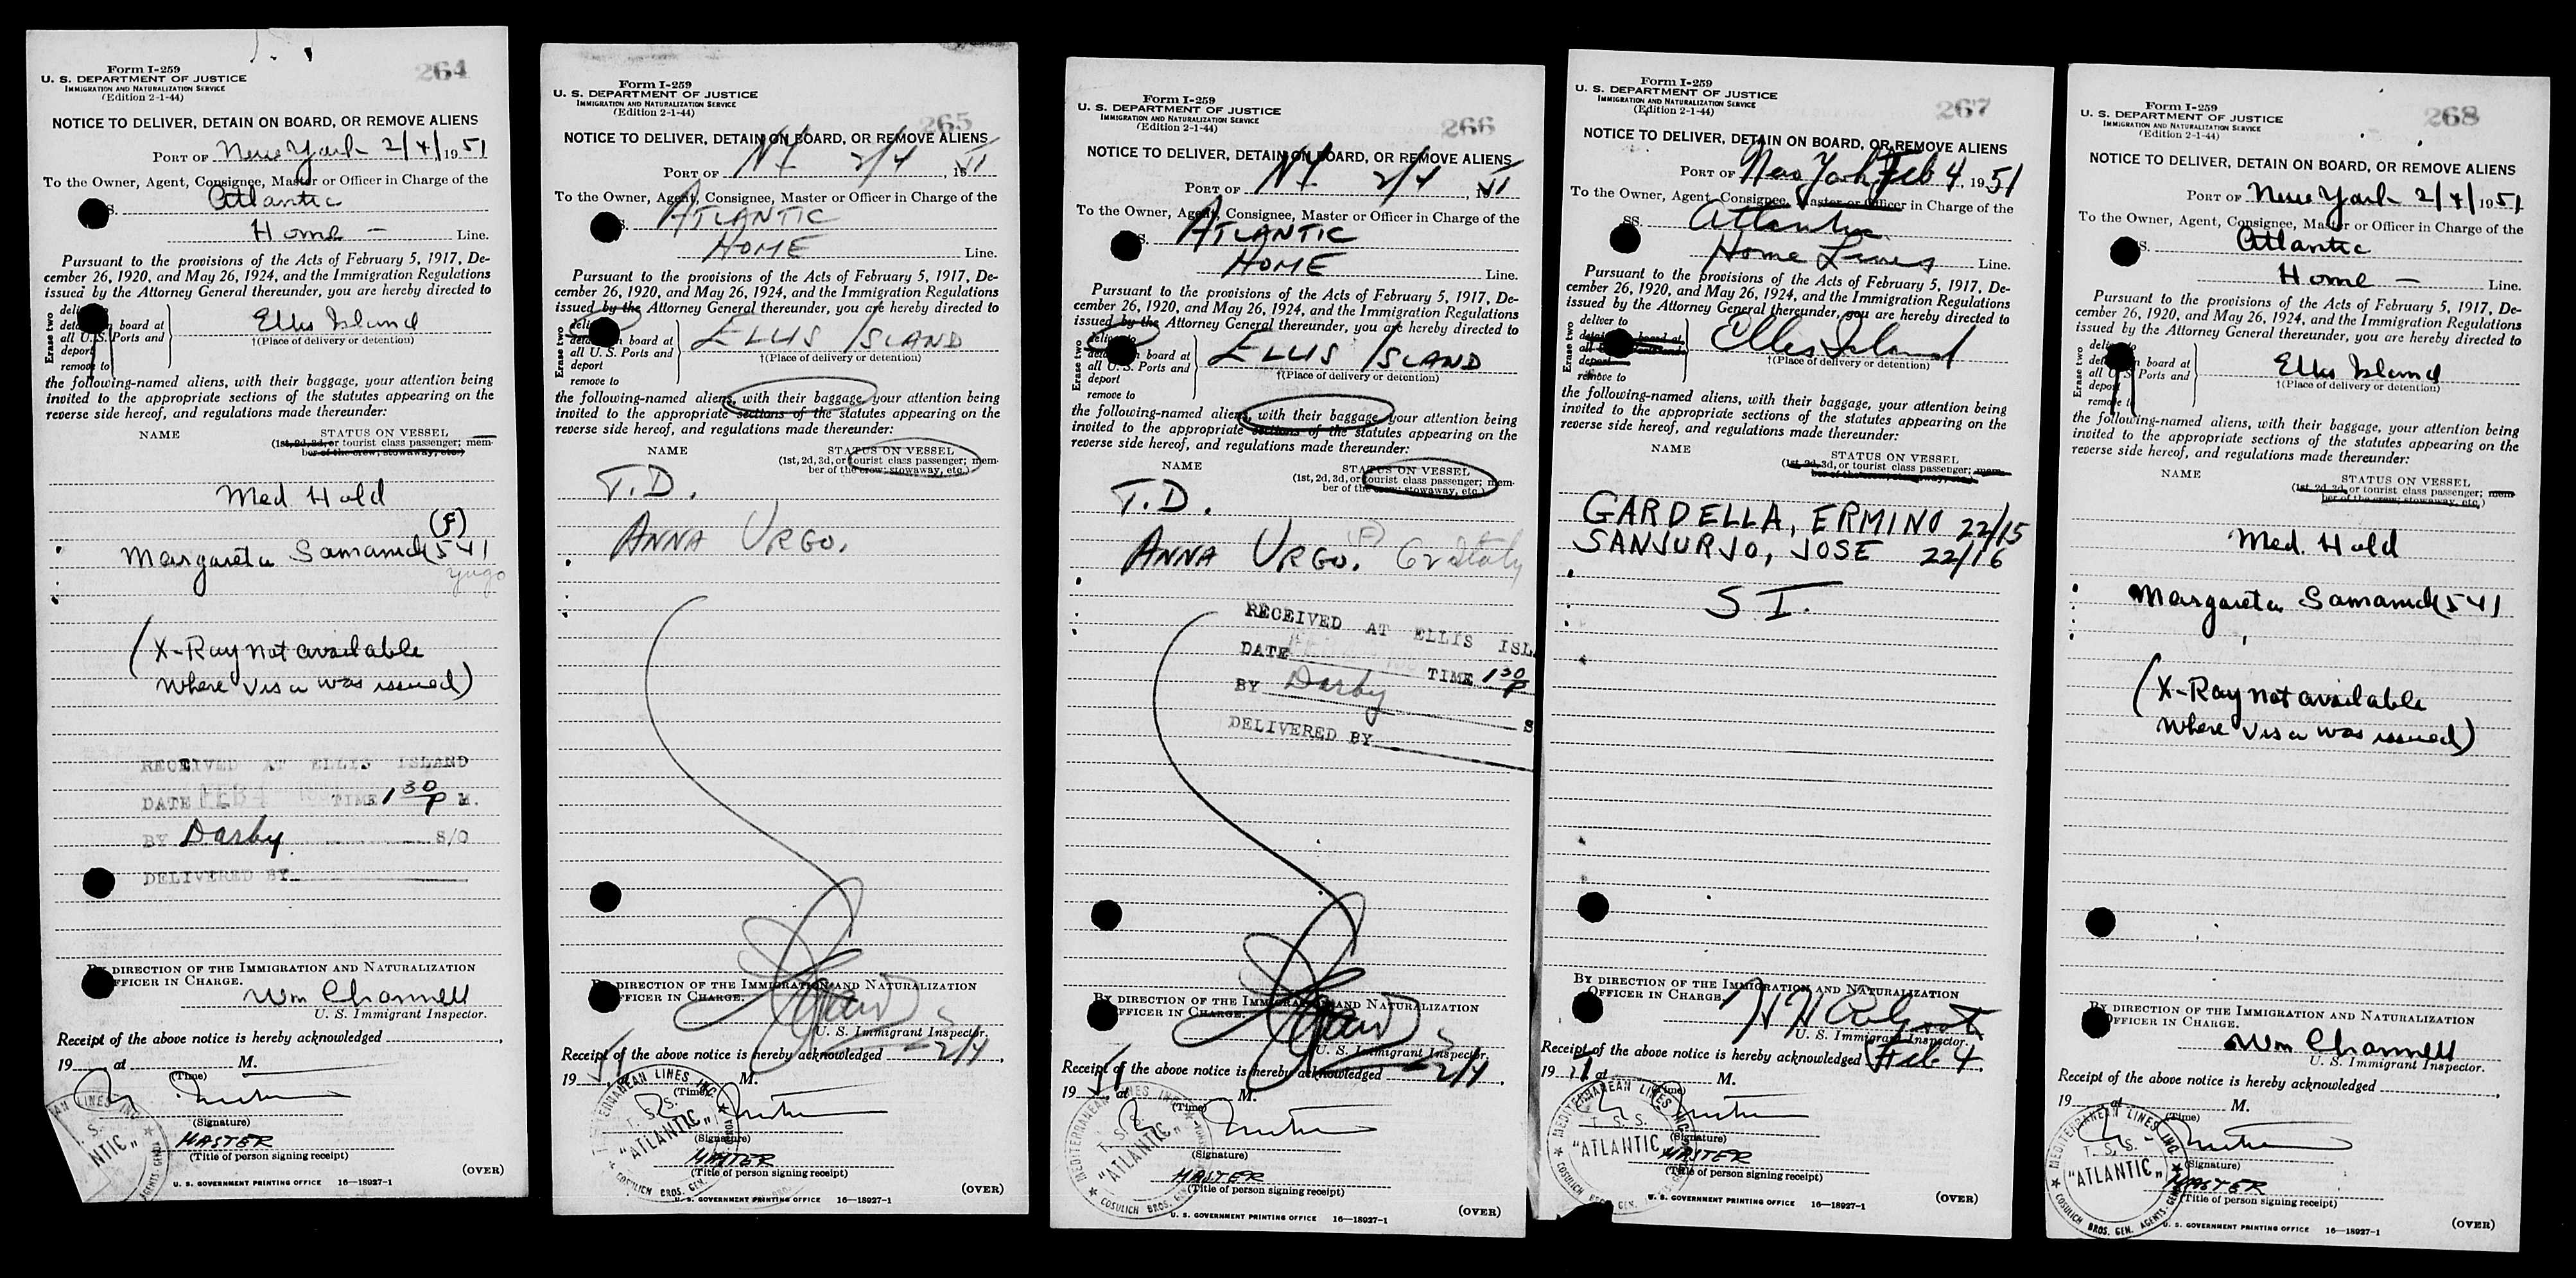 264
Form I-259
U. S. DEPARTMENT OF JUSTICE
IMMIGRATION AND NATURALIZATION SERVICE
(Edition 2-1-44)
NOTICE TO DELIVER, DETAIN ON BOARD, OR REMOVE ALIENS
PORT OF New York 2/4/1951
To the Owner, Agent, Consignee, Master or Officer in Charge of the
S. Atlantic
Home - Line.
Pursuant to the provisions of the Acts of February 5, 1917, De-
cember 26, 1920, and May 26, 1924, and the Immigration Regulations
issued by the Attorney General thereunder, you are hereby directed to
Erase two
board at
all U. S. Ports and
deport
remove to
Ellis Island
†(Place of delivery or detention)
the following-named aliens, with their baggage, your attention being
invited to the appropriate sections of the statutes appearing on the
reverse side hereof, and regulations made thereunder:
NAME STATUS ON VESSEL
(1st, 2d, 3d, or tourist class passenger; mem-
ber of the crew; stowaway, etc.)
Med. Hold
(F)
Margareta 541
yugo
(X-Ray not available
where visa was issued)
RECEIVED AT ELLIS ISLAND
DATE FEB 4 TIME 1 30 P M.
BY Darby S/O
DELIVERED BY
BY DIRECTION OF THE IMMIGRATION AND NATURALIZATION
OFFICER IN CHARGE.
Wm Channell
U. S. Immigrant Inspector.
Receipt of the above notice is hereby acknowledged
19 at M.
(Time)
(Signature)
MASTER
(Title of person signing receipt)
(OVER)
U. S. GOVERNMENT PRINTING OFFICE 16—18927-1
265
Form I-259
U. S. DEPARTMENT OF JUSTICE
IMMIGRATION AND NATURALIZATION SERVICE
(Edition 2-1-44)
NOTICE TO DELIVER, DETAIN ON BOARD, OR REMOVE ALIENS
PORT OF NY 2/4, 1951
To the Owner, Agent, Consignee, Master or Officer in Charge of the
S. ATLANTIC
HOME Line.
Pursuant to the provisions of the Acts of February 5, 1917, De-
cember 26, 1920, and May 26, 1924, and the Immigration Regulations
issued by the Attorney General thereunder, you are hereby directed to
Erase two
board at
all U. S. Ports and
deport
remove to
ELLIS ISLAND
†(Place of delivery or detention)
the following-named aliens, with their baggage, your attention being
invited to the appropriate sections of the statutes appearing on the
reverse side hereof, and regulations made thereunder:
NAME STATUS ON VESSEL
(1st, 2d, 3d, or tourist class passenger; mem-
ber of the crew; stowaway, etc.)
T.D.
ANNA URGO.
BY DIRECTION OF THE IMMIGRATION AND NATURALIZATION
OFFICER IN CHARGE.
U. S. Immigrant Inspector.
Receipt of the above notice is hereby acknowledged 2/4,
1951 M.
(Time)
(Signature)
MASTER
(Title of person signing receipt)
MEDITERRANEAN LINES INC.
T. S. S.
"ATLANTIC"
COSULICH BROS. GEN.
(OVER)
U. S. GOVERNMENT PRINTING OFFICE 16—18927-1
266
Form I-259
U. S. DEPARTMENT OF JUSTICE
IMMIGRATION AND NATURALIZATION SERVICE
(Edition 2-1-44)
NOTICE TO DELIVER, DETAIN ON BOARD, OR REMOVE ALIENS
PORT OF NY 2/4, 1951
To the Owner, Agent, Consignee, Master or Officer in Charge of the
S. ATLANTIC
HOME Line.
Pursuant to the provisions of the Acts of February 5, 1917, De-
cember 26, 1920, and May 26, 1924, and the Immigration Regulations
issued by the Attorney General thereunder, you are hereby directed to
Erase two
board at
all U. S. Ports and
deport
remove to
ELLIS ISLAND
†(Place of delivery or detention)
the following-named aliens, with their baggage, your attention being
invited to the appropriate sections of the statutes appearing on the
reverse side hereof, and regulations made thereunder:
NAME STATUS ON VESSEL
(1st, 2d, 3d, or tourist class passenger; mem-
ber of the crew; stowaway, etc.)
T.D.
ANNA URGO. (F) 62 Italy
RECEIVED AT ELLIS ISL
DATE TIME 1 30 P
BY Darby S
DELIVERED BY
BY DIRECTION OF THE IMMIGRATION AND NATURALIZATION
OFFICER IN CHARGE.
U. S. Immigrant Inspector.
Receipt of the above notice is hereby acknowledged 2/4,
1951 at M.
(Time)
(Signature)
MASTER
(Title of person signing receipt)
MEDITERRANEAN LINES INC.
T. S. S.
"ATLANTIC"
COSULICH BROS. GEN.
(OVER)
U. S. GOVERNMENT PRINTING OFFICE 16—18927-1
267
Form I-259
U. S. DEPARTMENT OF JUSTICE
IMMIGRATION AND NATURALIZATION SERVICE
(Edition 2-1-44)
NOTICE TO DELIVER, DETAIN ON BOARD, OR REMOVE ALIENS
PORT OF New York, Feb 4, 1951
To the Owner, Agent, Consignee, Master or Officer in Charge of the
SS. Atlantic
Home Lines Line.
Pursuant to the provisions of the Acts of February 5, 1917, De-
cember 26, 1920, and May 26, 1924, and the Immigration Regulations
issued by the Attorney General thereunder, you are hereby directed to
Erase two
deliver to
board at
deport
remove to
Ellis Island
†(Place of delivery or detention)
the following-named aliens, with their baggage, your attention being
invited to the appropriate sections of the statutes appearing on the
reverse side hereof, and regulations made thereunder:
NAME STATUS ON VESSEL
(1st, 2d, 3d, or tourist class passenger; mem-
ber of the crew; stowaway, etc.)
GARDELLA, ERMINO 22/15
SANJURJO, JOSE 22/16
S.I.
BY DIRECTION OF THE IMMIGRATION AND NATURALIZATION
OFFICER IN CHARGE.
U. S. Immigrant Inspector.
Receipt of the above notice is hereby acknowledged Feb 4.
1951 at M.
(Time)
(Signature)
MASTER
(Title of person signing receipt)
MEDITERRANEAN LINES INC.
T. S. S.
"ATLANTIC"
COSULICH GEN.
(OVER)
U. S. GOVERNMENT PRINTING OFFICE 16—18927-1
268
Form I-259
U. S. DEPARTMENT OF JUSTICE
IMMIGRATION AND NATURALIZATION SERVICE
(Edition 2-1-44)
NOTICE TO DELIVER, DETAIN ON BOARD, OR REMOVE ALIENS
PORT OF New York 2/4/1951
To the Owner, Agent, Consignee, Master or Officer in Charge of the
S. Atlantic
Home - Line.
Pursuant to the provisions of the Acts of February 5, 1917, De-
cember 26, 1920, and May 26, 1924, and the Immigration Regulations
issued by the Attorney General thereunder, you are hereby directed to
Erase two
board at
all U. S. Ports and
deport
remove to
Ellis Island
†(Place of delivery or detention)
the following-named aliens, with their baggage, your attention being
invited to the appropriate sections of the statutes appearing on the
reverse side hereof, and regulations made thereunder:
NAME STATUS ON VESSEL
(1st, 2d, 3d, or tourist class passenger; mem-
ber of the crew; stowaway, etc.)
Med. Hold
Margareta 541
(X-Ray not available
where visa was issued)
BY DIRECTION OF THE IMMIGRATION AND NATURALIZATION
OFFICER IN CHARGE.
Wm Channell
U. S. Immigrant Inspector.
Receipt of the above notice is hereby acknowledged
19 at M.
(Time)
(Signature)
MASTER
(Title of person signing receipt)
MEDITERRANEAN LINES INC.
T. S. S.
"ATLANTIC"
COSULICH BROS. GEN. AGENTS-GENOA
(OVER)
U. S. GOVERNMENT PRINTING OFFICE 16—18927-1